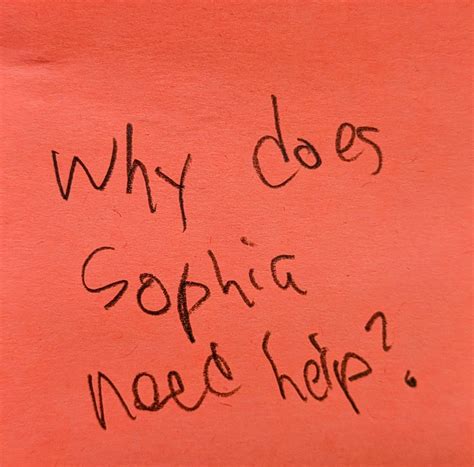 Why does
Sophia
need help?